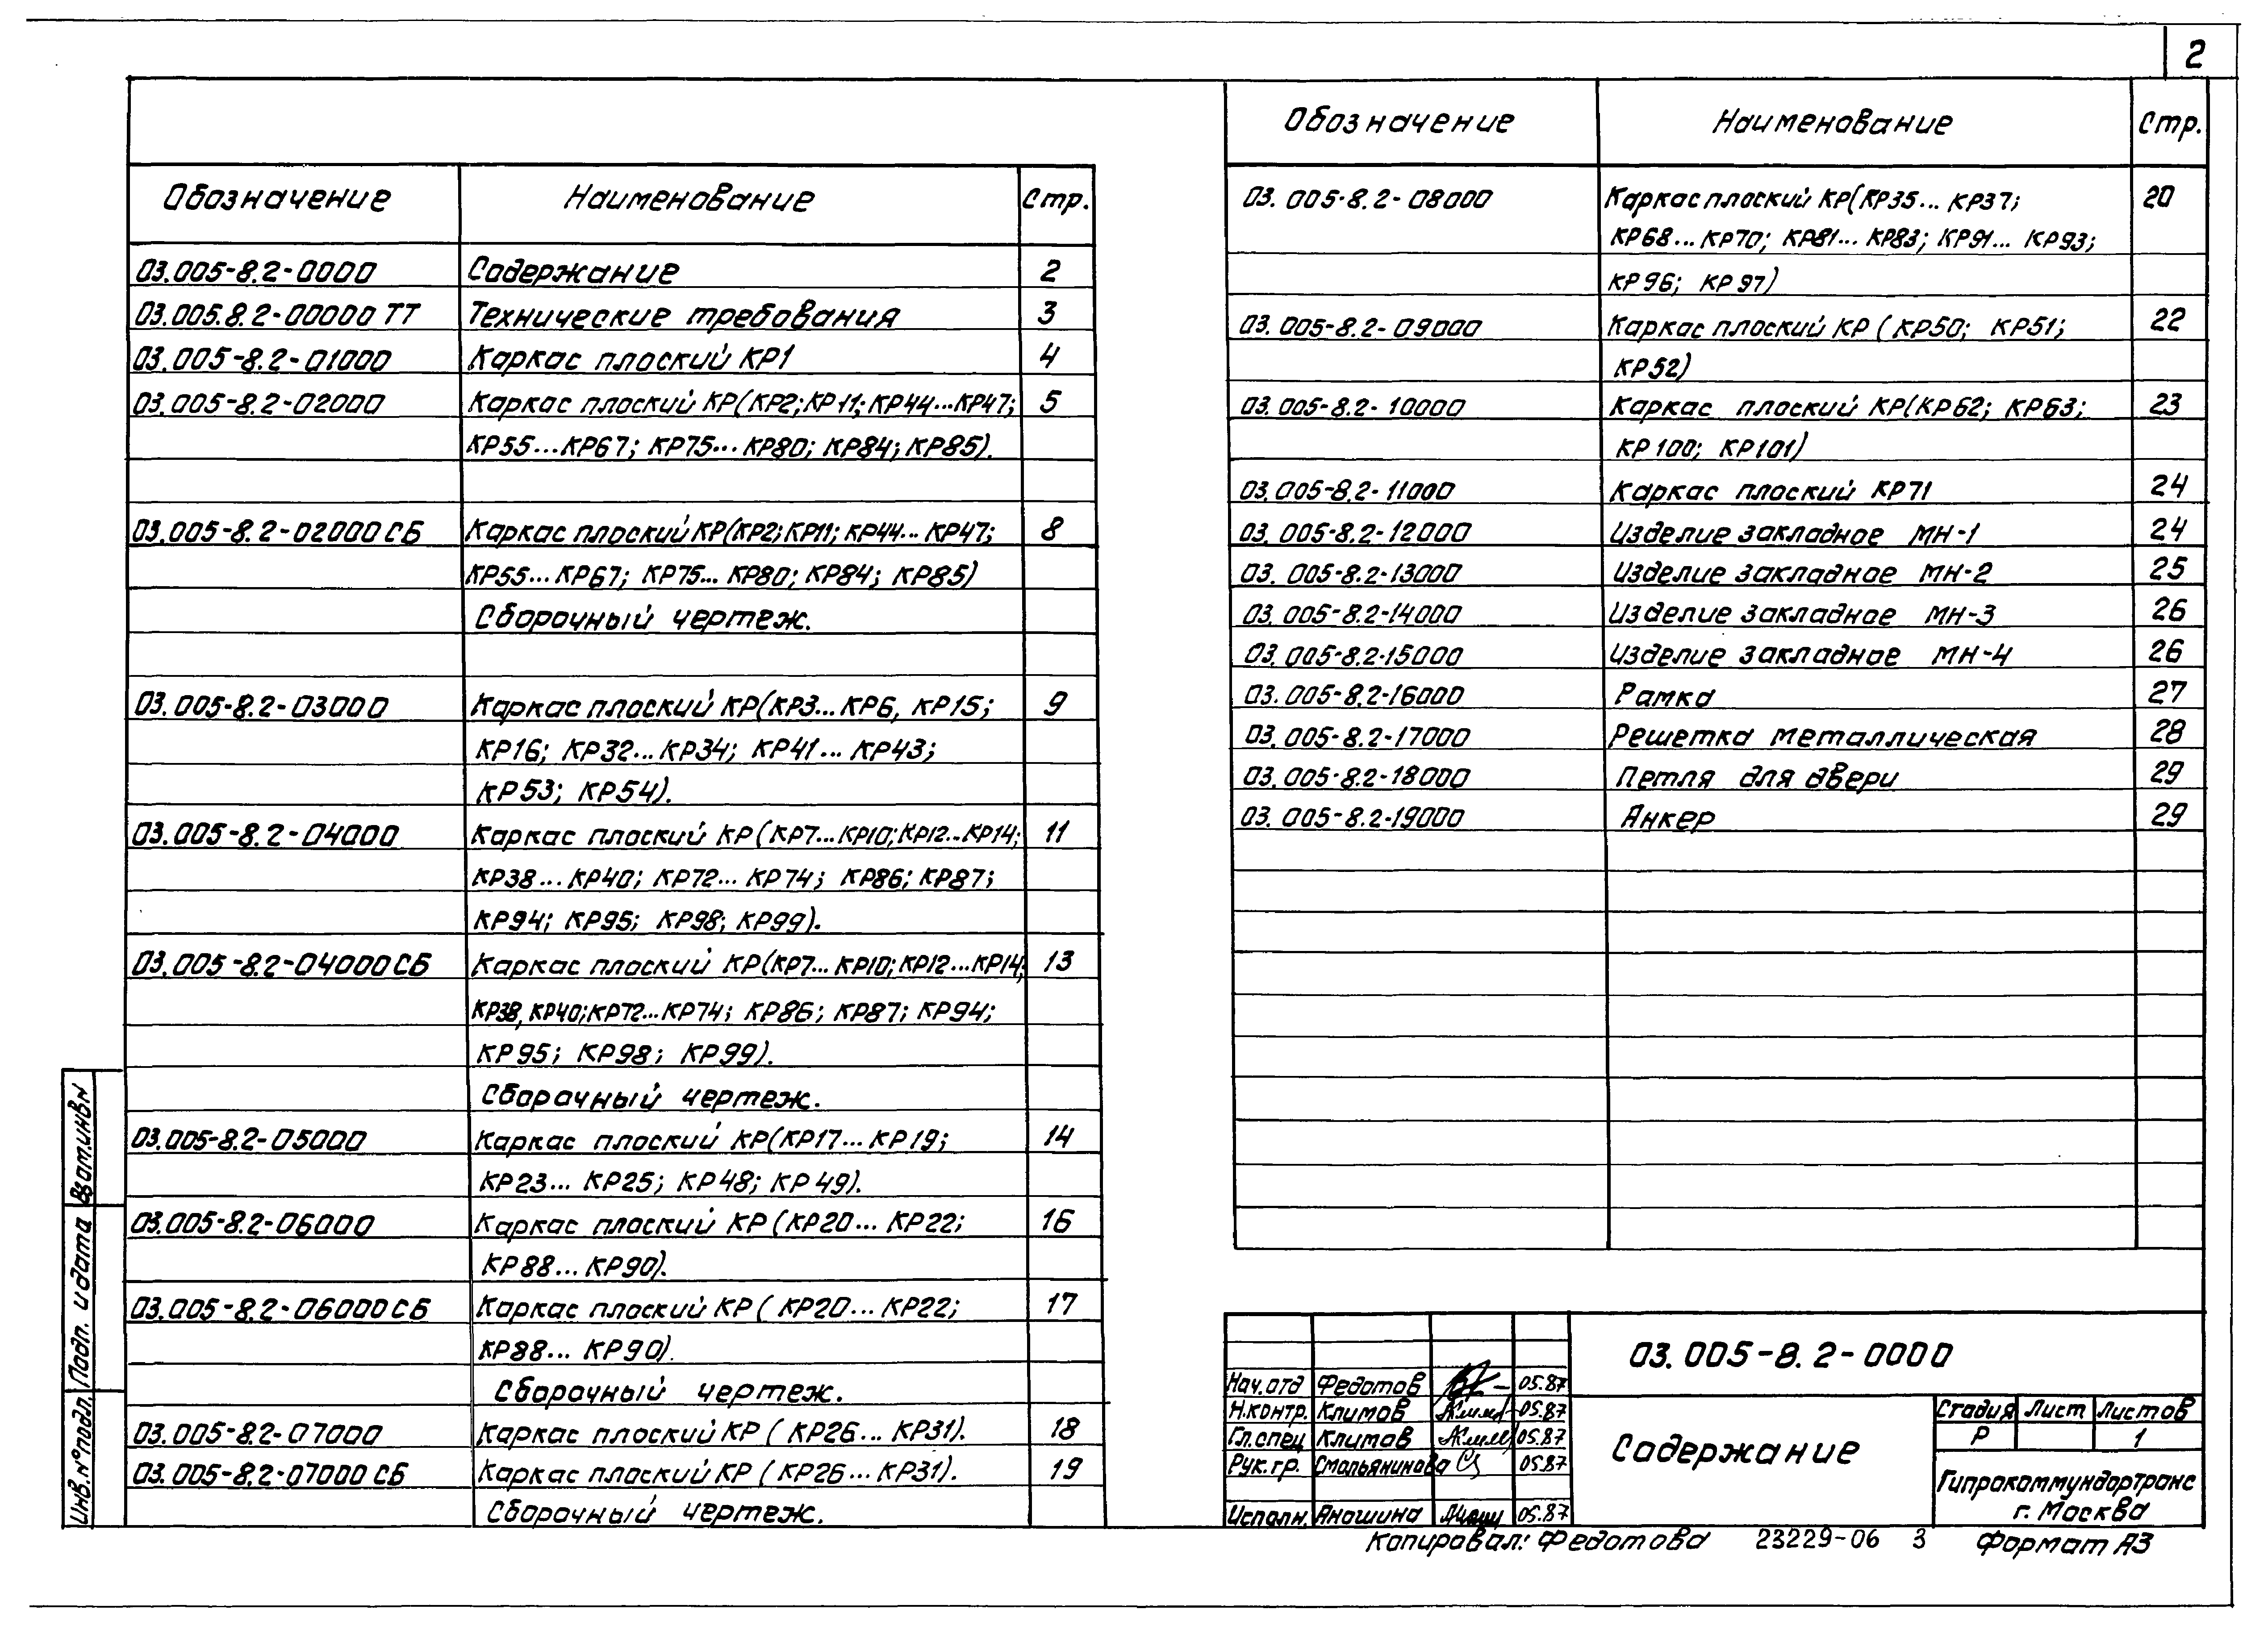 2
Обозначение Наименование Стр.
03.005-8.2-0000 Содержание 2
03.005.8.2-00000 ТТ Технические требования 3
03.005-8.2-01000 Каркас плоский КР1 4
03.005-8.2-02000 Каркас плоский КР(КР2; КР11; КР44...КР47; 5
КР55...КР67; КР75...КР80; КР84; КР85).
03.005-8.2-02000 СБ Каркас плоский КР(КР2; КР11; КР44... КР47; 8
КР55... КР67; КР75... КР80; КР84; КР85)
Сборочный чертеж.
03.005-8.2-03000 Каркас плоский КР(КР3... КР6, КР15; 9
КР16; КР32... КР34; КР41... КР43;
КР53; КР54).
03.005-8.2-04000 Каркас плоский КР (КР7...КР10; КР12...КР14; 11
КР38... КР40; КР72... КР74; КР86; КР87;
КР94; КР95; КР98; КР99).
03.005-8.2-04000 СБ Каркас плоский КР(КР7... КР10; КР12...КР14; 13
КР38, КР40; КР72...КР74; КР86; КР87; КР94;
КР95; КР98; КР99).
Сборочный чертеж.
03.005-8.2-05000 Каркас плоский КР(КР17... КР19; 14
КР23... КР25; КР48; КР49).
03.005-8.2-06000 Каркас плоский КР (КР20... КР22; 16
КР88... КР90).
03.005-8.2-06000 СБ Каркас плоский КР ( КР20... КР22; 17
КР88... КР90).
Сборочный чертеж.
03.005-8.2-07000 Каркас плоский КР ( КР26... КР31). 18
03.005-8.2-07000 СБ Каркас плоский КР ( КР26... КР31). 19
Сборочный чертеж.
Обозначение Наименование Стр.
03. 005-8.2-08000 Каркас плоский КР(КР35... КР37; 20
КР68... КР70; КР81... КР83; КР91... КР93;
КР96; КР97)
03. 005-8.2-09000 Каркас плоский КР ( КР50; КР51; 22
КР52)
03. 005-8.2-10000 Каркас плоский КР(КР62; КР63; 23
КР100; КР101)
03. 005-8.2-11000 Каркас плоский КР71 24
03. 005-8.2-12000 Изделие закладное МН-1 24
03. 005-8.2-13000 Изделие закладное МН-2 25
03. 005-8.2-14000 Изделие закладное МН-3 26
03. 005-8.2-15000 Изделие закладное МН-4 26
03. 005-8.2-16000 Рамка 27
03. 005-8.2-17000 Решетка металлическая 28
03. 005-8.2-18000 Петля для двери 29
03. 005-8.2-19000 Анкер 29
Взам.инв№
Подп. и дата
Инв.№подл.
03. 005-8. 2-0000
Нач.отд Федотов 05.87
Н.контр. Климов 05.87
Гл.спец Климов 05.87
Рук.гр. Смольянинова 05.87
Исполн. Аношина 05.87
Содержание
Стадия Лист Листов
Р 1
Гипрокоммундортранс
г. Москва
Копировал: Федотова 23229-06 3 Формат А3